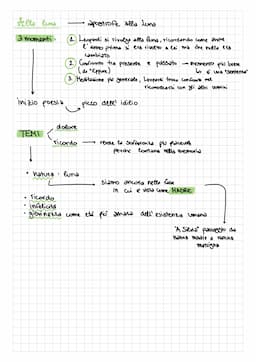 Alla luna → apostrofe alla luna
3 momenti
1 Leopardi si rivolge alla luna, ricordando come anche
l'anno prima si era rivolto a lei ma che nulla era
cambiato
2 Confronto tra presente e passato → momento più breve
(da "Eppure")
3 Meditazione più generale, Leopardi trova conforto nel
riconoscersi con gli altri uomini
inizio poesia → picco dell'idillio
TEMI
dolore
ricordo → rende la sofferenza più piacevole
perché lontana nella memoria
• natura - luna
siamo ancora nella fase
in cui è vista come MADRE
• ricordo
• infelicità
• giovinezza come età più amara dell'esistenza umana
"A Silvia" passaggio da
natura madre a natura
matrigna